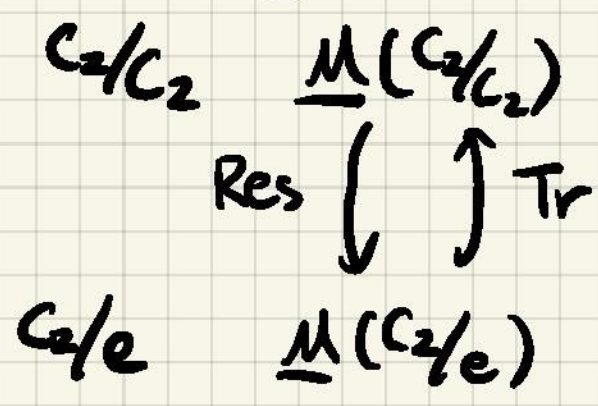 C₂/C₂ M(C₂/C₂)
Res Tr
C₂/e M(C₂/e)